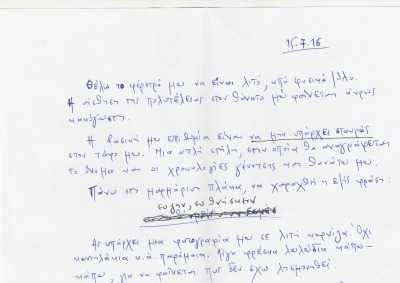 15.7.16
Θέλω το φέρετρό μου να είναι λιτό, από φυσικό ξύλο.
Η αίσθηση της πολυτέλειας στον θάνατο μού φαίνεται άκρως
Η βασική μου επιθυμία είναι να μην υπάρχει σταυρός
στον τάφο μου. Μια απλή στήλη, στην οποία θα αναγράφεται
το όνομα και οι χρονολογίες γέννησης και θανάτου μου.
Πάνω στη μαρμάρινη πλάκα, να χαραχθεί η εξής φράση:
ευ ζην, ευ θνήσκειν
Ας υπάρχει μια φωτογραφία μου σε λιτή κορνίζα. Όχι
καντηλάκια κ.ά. παρόμοια. Λίγα φρέσκα λουλούδια κάπου-
κάπου, για να φαίνεται πως δεν έχω λησμονηθεί.